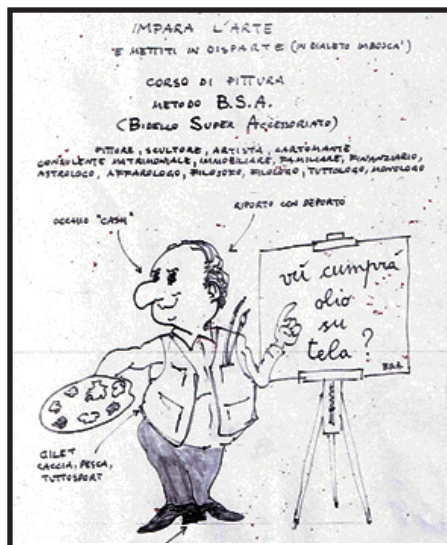 IMPARA L'ARTE
E METTITI IN DISPARTE (IN DIALETO IMBOSCA')
CORSO DI PITTURA
METODO B.S.A.
(BIDELLO SUPER ACCESSORIATO)
PITTORE, SCULTORE, ARTISTA, CARTOMANTE
CONSULENTE MATRIMONIALE, IMMOBILIARE, FAMILIARE, FINANZIARIO,
ASTROLOGO, AFFAROLOGO, FILOSOFO, FILOLOGO, TUTTOLOGO, MONOLOGO
RIPORTO CON DEPORTO
OCCHIO "CASH"
vù cumprà
olio
su
tela?
B.S.A.
GILET
CACCIA, PESCA,
TUTTOSPORT